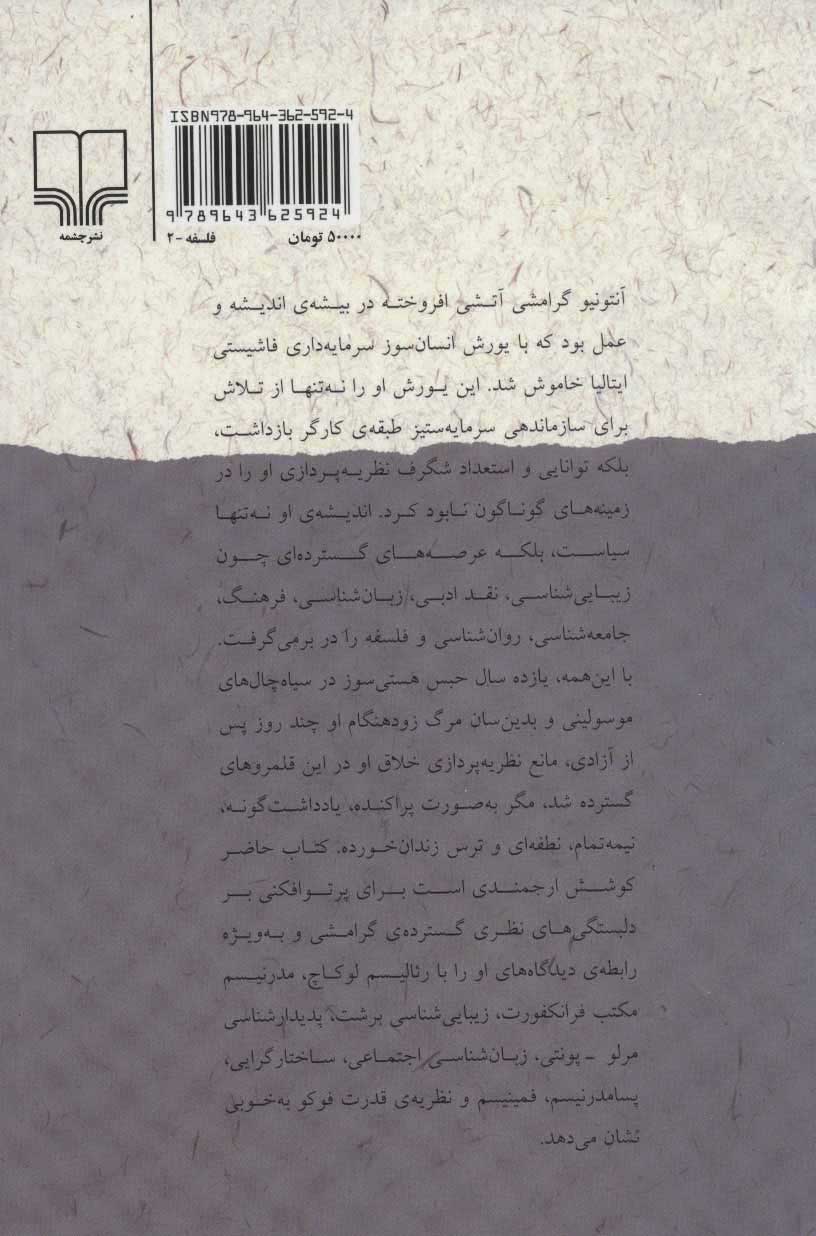 ISBN978-964-362-592-4
9 789643 625924
۵۰۰۰۰ تومان
فلسفه -۲
نشرچشمه
آنتونیو گرامشی آتشی افروخته در بیشه‌ی اندیشه و
عمل بود که با یورش انسان‌سوز سرمایه‌داری فاشیستی
ایتالیا خاموش شد. این یورش او را نه‌تنها از تلاش
برای سازماندهی سرمایه‌ستیز طبقه‌ی کارگر بازداشت،
بلکه توانایی و استعداد شگرف نظریه‌پردازی او را در
زمینه‌های گوناگون نابود کرد. اندیشه‌ی او نه‌تنها
سیاست، بلکه عرصه‌های گسترده‌ای چون
زیبایی‌شناسی، نقد ادبی، زبان‌شناسی، فرهنگ،
جامعه‌شناسی، روان‌شناسی و فلسفه را در برمی‌گرفت.
با این‌همه، یازده سال حبس هستی‌سوز در سیاه‌چال‌های
موسولینی و بدین‌سان مرگ زودهنگام او چند روز پس
از آزادی، مانع نظریه‌پردازی خلاق او در این قلمروهای
گسترده شد، مگر به‌صورت پراکنده، یادداشت‌گونه،
نیمه‌تمام، نطفه‌ای و ترس زندان‌خورده. کتاب حاضر
کوشش ارجمندی است برای پرتوافکنی بر
دلبستگی‌های نظری گسترده‌ی گرامشی و به‌ویژه
رابطه‌ی دیدگاه‌های او را با رئالیسم لوکاچ، مدرنیسم
مکتب فرانکفورت، زیبایی‌شناسی برشت، پدیدارشناسی
مرلو ـ پونتی، زبان‌شناسی اجتماعی، ساختارگرایی،
پسامدرنیسم، فمینیسم و نظریه‌ی قدرت فوکو به‌خوبی
نشان می‌دهد.